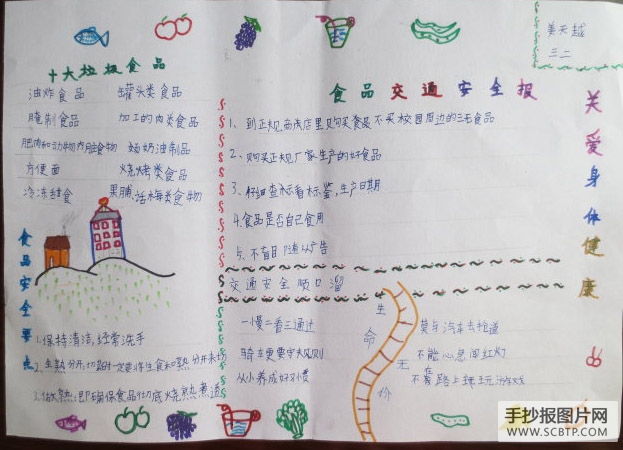 姜天越
三二
十大垃圾食品
油炸食品 罐头类食品
腌制食品 加工的肉类食品
肥肉和动物内脏食物 奶油制品
方便面 烧烤类食品
冷冻甜食 果脯、话梅类食物
食品安全要点
1、保持清洁,经常洗手
2、生熟分开,切菜时一定要将生食和熟分开
3、做熟:即确保食品彻底烧熟煮透
食品交通安全报
1、到正规商店里购买食品,不买校园周边的三无食品
2、购买正规厂家生产的好食品
3、仔细查标看标签,生产日期
4.食品是否自己食用
5、不盲目随从广告
交通安全顺口溜
一慢二看三通过
骑车更要守规则
从小养成好习惯
生命无价
莫与汽车去抢道
不能心急闯红灯
不在路上打游戏
关爱身体健康
手抄报图片网
WWW.SCBTP.COM